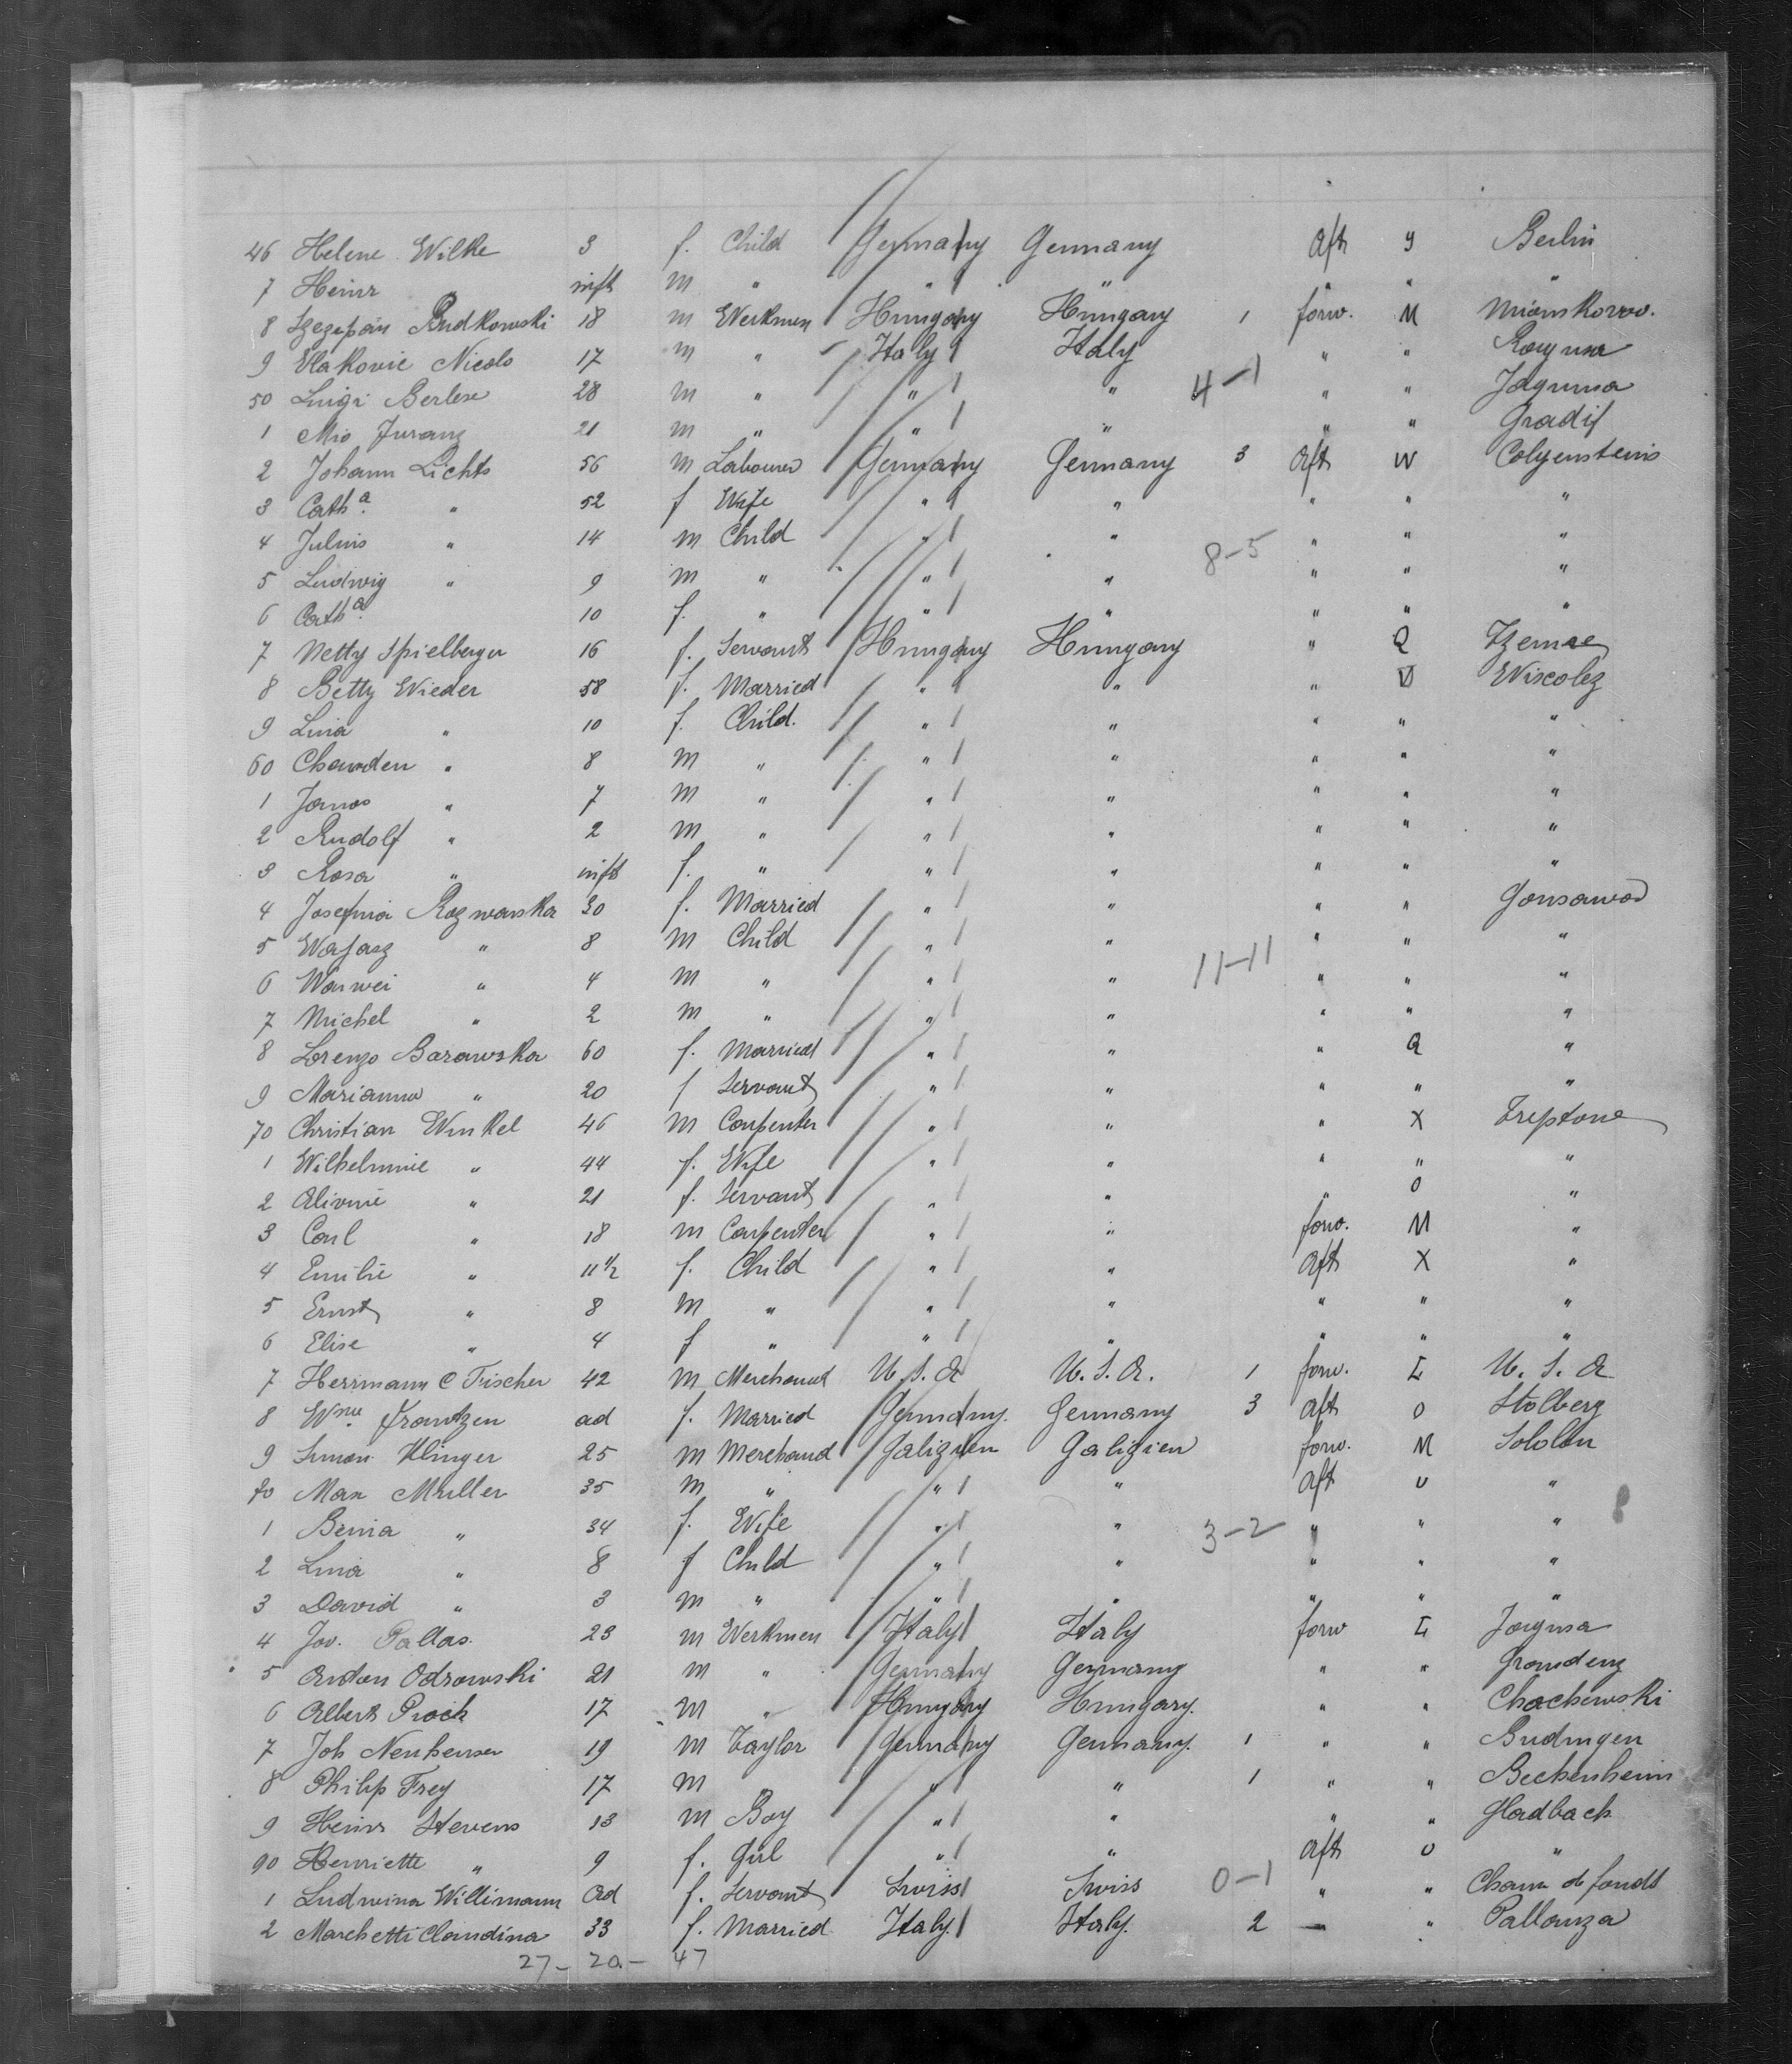 46 Helene Wilke 3 f. Child Germany Germany Aft y Berlin
7 Heinr " inft m " " " " " "
8 Szezepan Budkowski 18 m Werkmen Hungary Hungary 1 forw. M
9 Vlakovic Nicolo 17 m " Italy Italy " " Ragusa
50 Luigi Berlese 28 m " " " 4-1 " "
1 Mio Juranz 21 m " " " " " Gradis
2 Johann Lichts 56 m Labourer Germany Germany 3 Aft W Colgenstein
3 Cath a. " 52 f Wife " " " " "
4 Julius " 14 m Child " " " " "
5 Ludwig " 9 m " " " 8-5 " " "
6 Cath a. 10 f. " " " " " "
7 Netty Spielberger 16 f. Servant Hungary Hungary " Q
8 Betty Wieder 58 f. Married " " " V Wiscolez
9 Lina " 10 f. Child. " " " " "
60 " 8 m " " " " " "
1 Janos " 7 m " " " " " "
2 Rudolf " 2 m " " " " " "
3 Rosa " inft f. " " " " " "
4 Josefina Rozwanska 30 f. Married " " " " Gonsawod
5 Wajasz " 8 m Child " " " " "
6 Warwei " 4 m " " " 11-11 " " "
7 Michel " 2 m " " " " " "
8 Lorenzo Barawska 60 f. Married " " " Q "
9 Marianna " 20 f Servant " " " " "
70 Christian Winkel 46 m Carpenter " " " X Treptone
1 Wilhelmine " 44 f. Wife " " " " "
2 Alivine " 21 f. Servant " " " O "
3 Carl " 18 m Carpenter " " forw. M "
4 Emilie " 11 1/2 f. Child " " Aft X "
5 Ernst " 8 m " " " " " "
6 Elise " 4 f " " " " " "
7 Herrmann C Fischer 42 m Merchant U.S.A U.S.A. 1 forw. L U.S.A
8 Wme Frantzen ad f. Married Germany. Germany 3 Aft O Stolberg
9 Simon Klinger 25 m Merchand Galizien Galizien forw. M Sololon
80 Max Muller 35 m " " " Aft U "
1 Brina " 34 f. Wife " " 3-2 " " "
2 Lina " 8 f Child " " " " "
3 David " 3 m " " " " " "
4 Jov. Pallas. 23 m Werkmen Italy Italy forw L
5 Anton Odrowski 21 m " Germany Germany " " Graudenz
6 Albert Proch 17 m " Hungary Hungary. " " Chachewski
7 Joh Neuheuser 19 m Taylor Germany Germany. 1 " " Budingen
8 Philip Frey 17 m " " 1 " " Beckenheim
9 Heinr Stevens 13 m Boy " " " " Gladbach
90 Henriette " 9 f. Girl " " Aft O "
1 Ludwina Willimann Ad f. Servant Swiss Swiss 0-1 " " Chaux de fonds
2 Marchetti Claudina 33 f. Married Italy. Italy. 2 — " Pallanza
27- 20.- 47